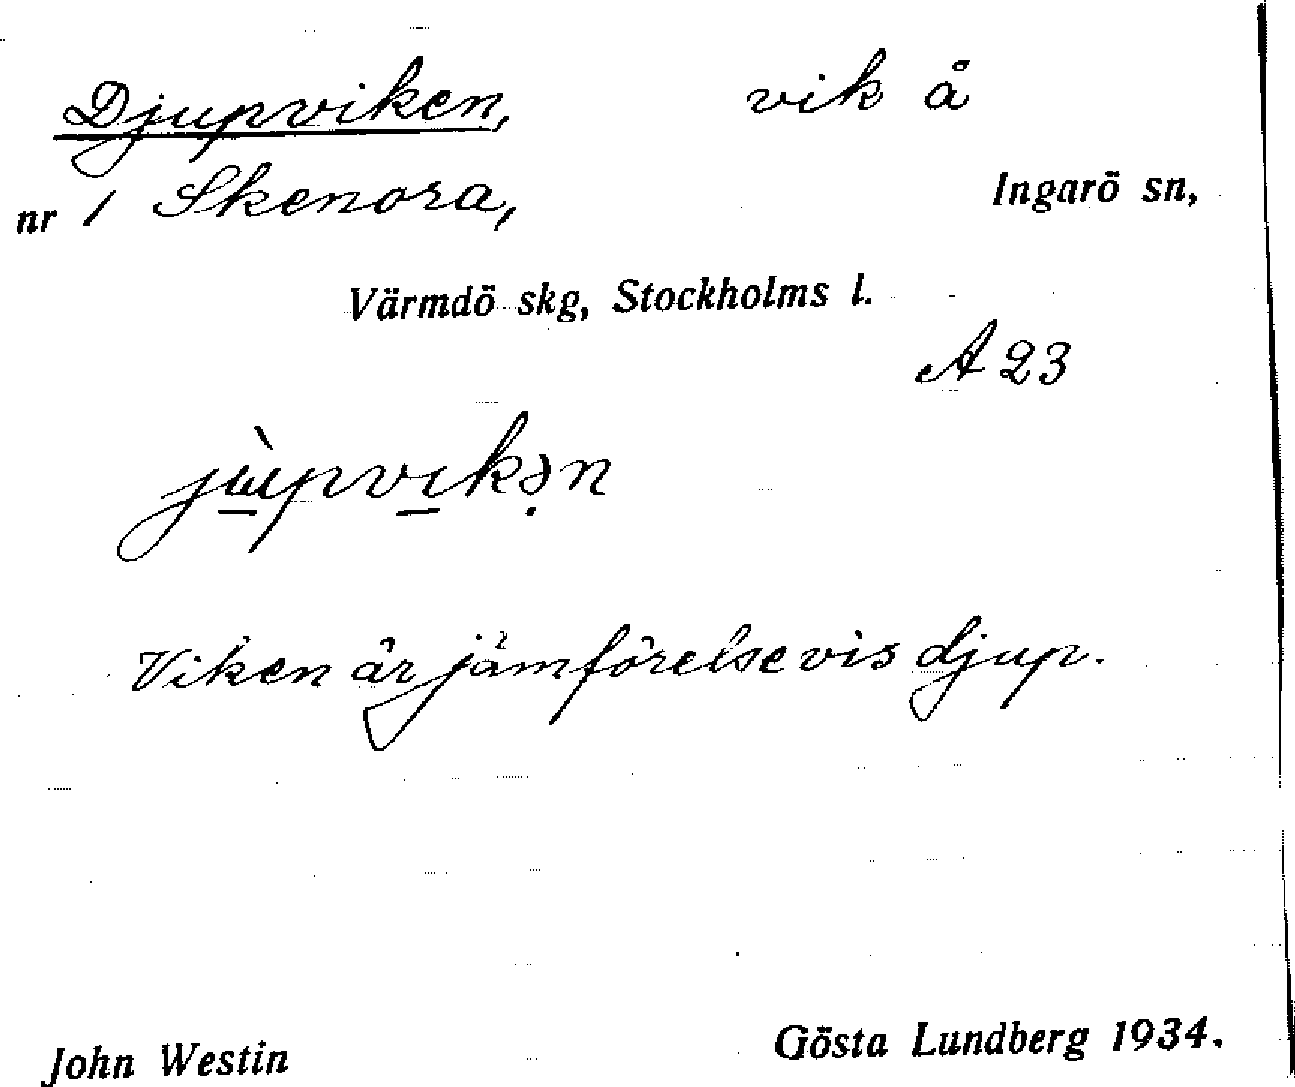 Djupviken, vik å
nr 1 Skenora, Ingarö sn,
Värmdö skg, Stockholms l.
A 23
jùpvikən
Viken är jämförelsevis djup.
John Westin Gösta Lundberg 1934.